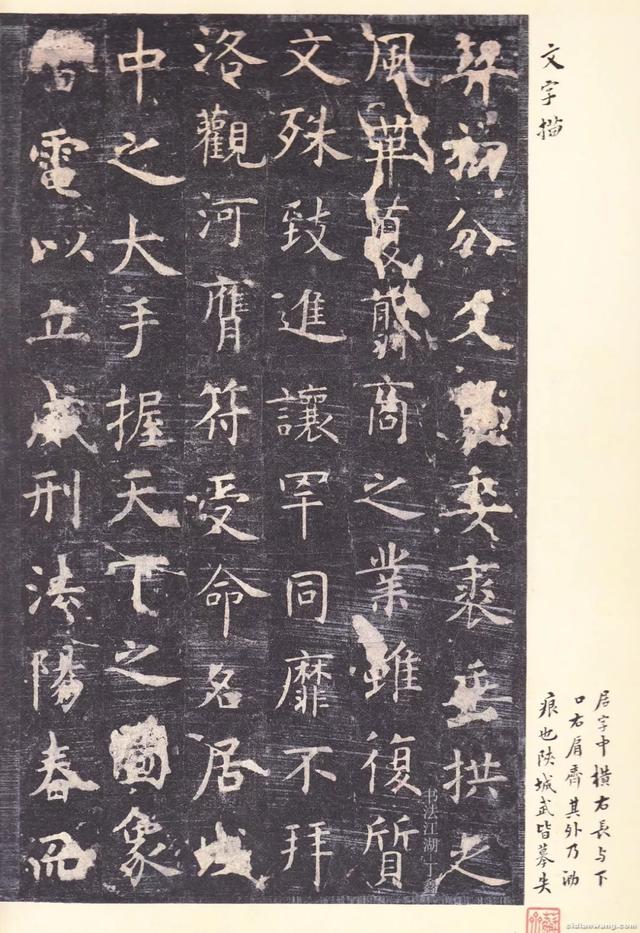 文字描
居字中横右長与下
口右肩齊其外乃泐
痕也陜城武皆摹失
契初分爻象委裘垂拱之
風華夏翦商之業雖復質
文殊致進讓罕同靡不拜
洛觀河膺符受命名居域
中之大手握天下之圖象
雷電以立威刑法陽春而
书法江湖
cidianwang.com